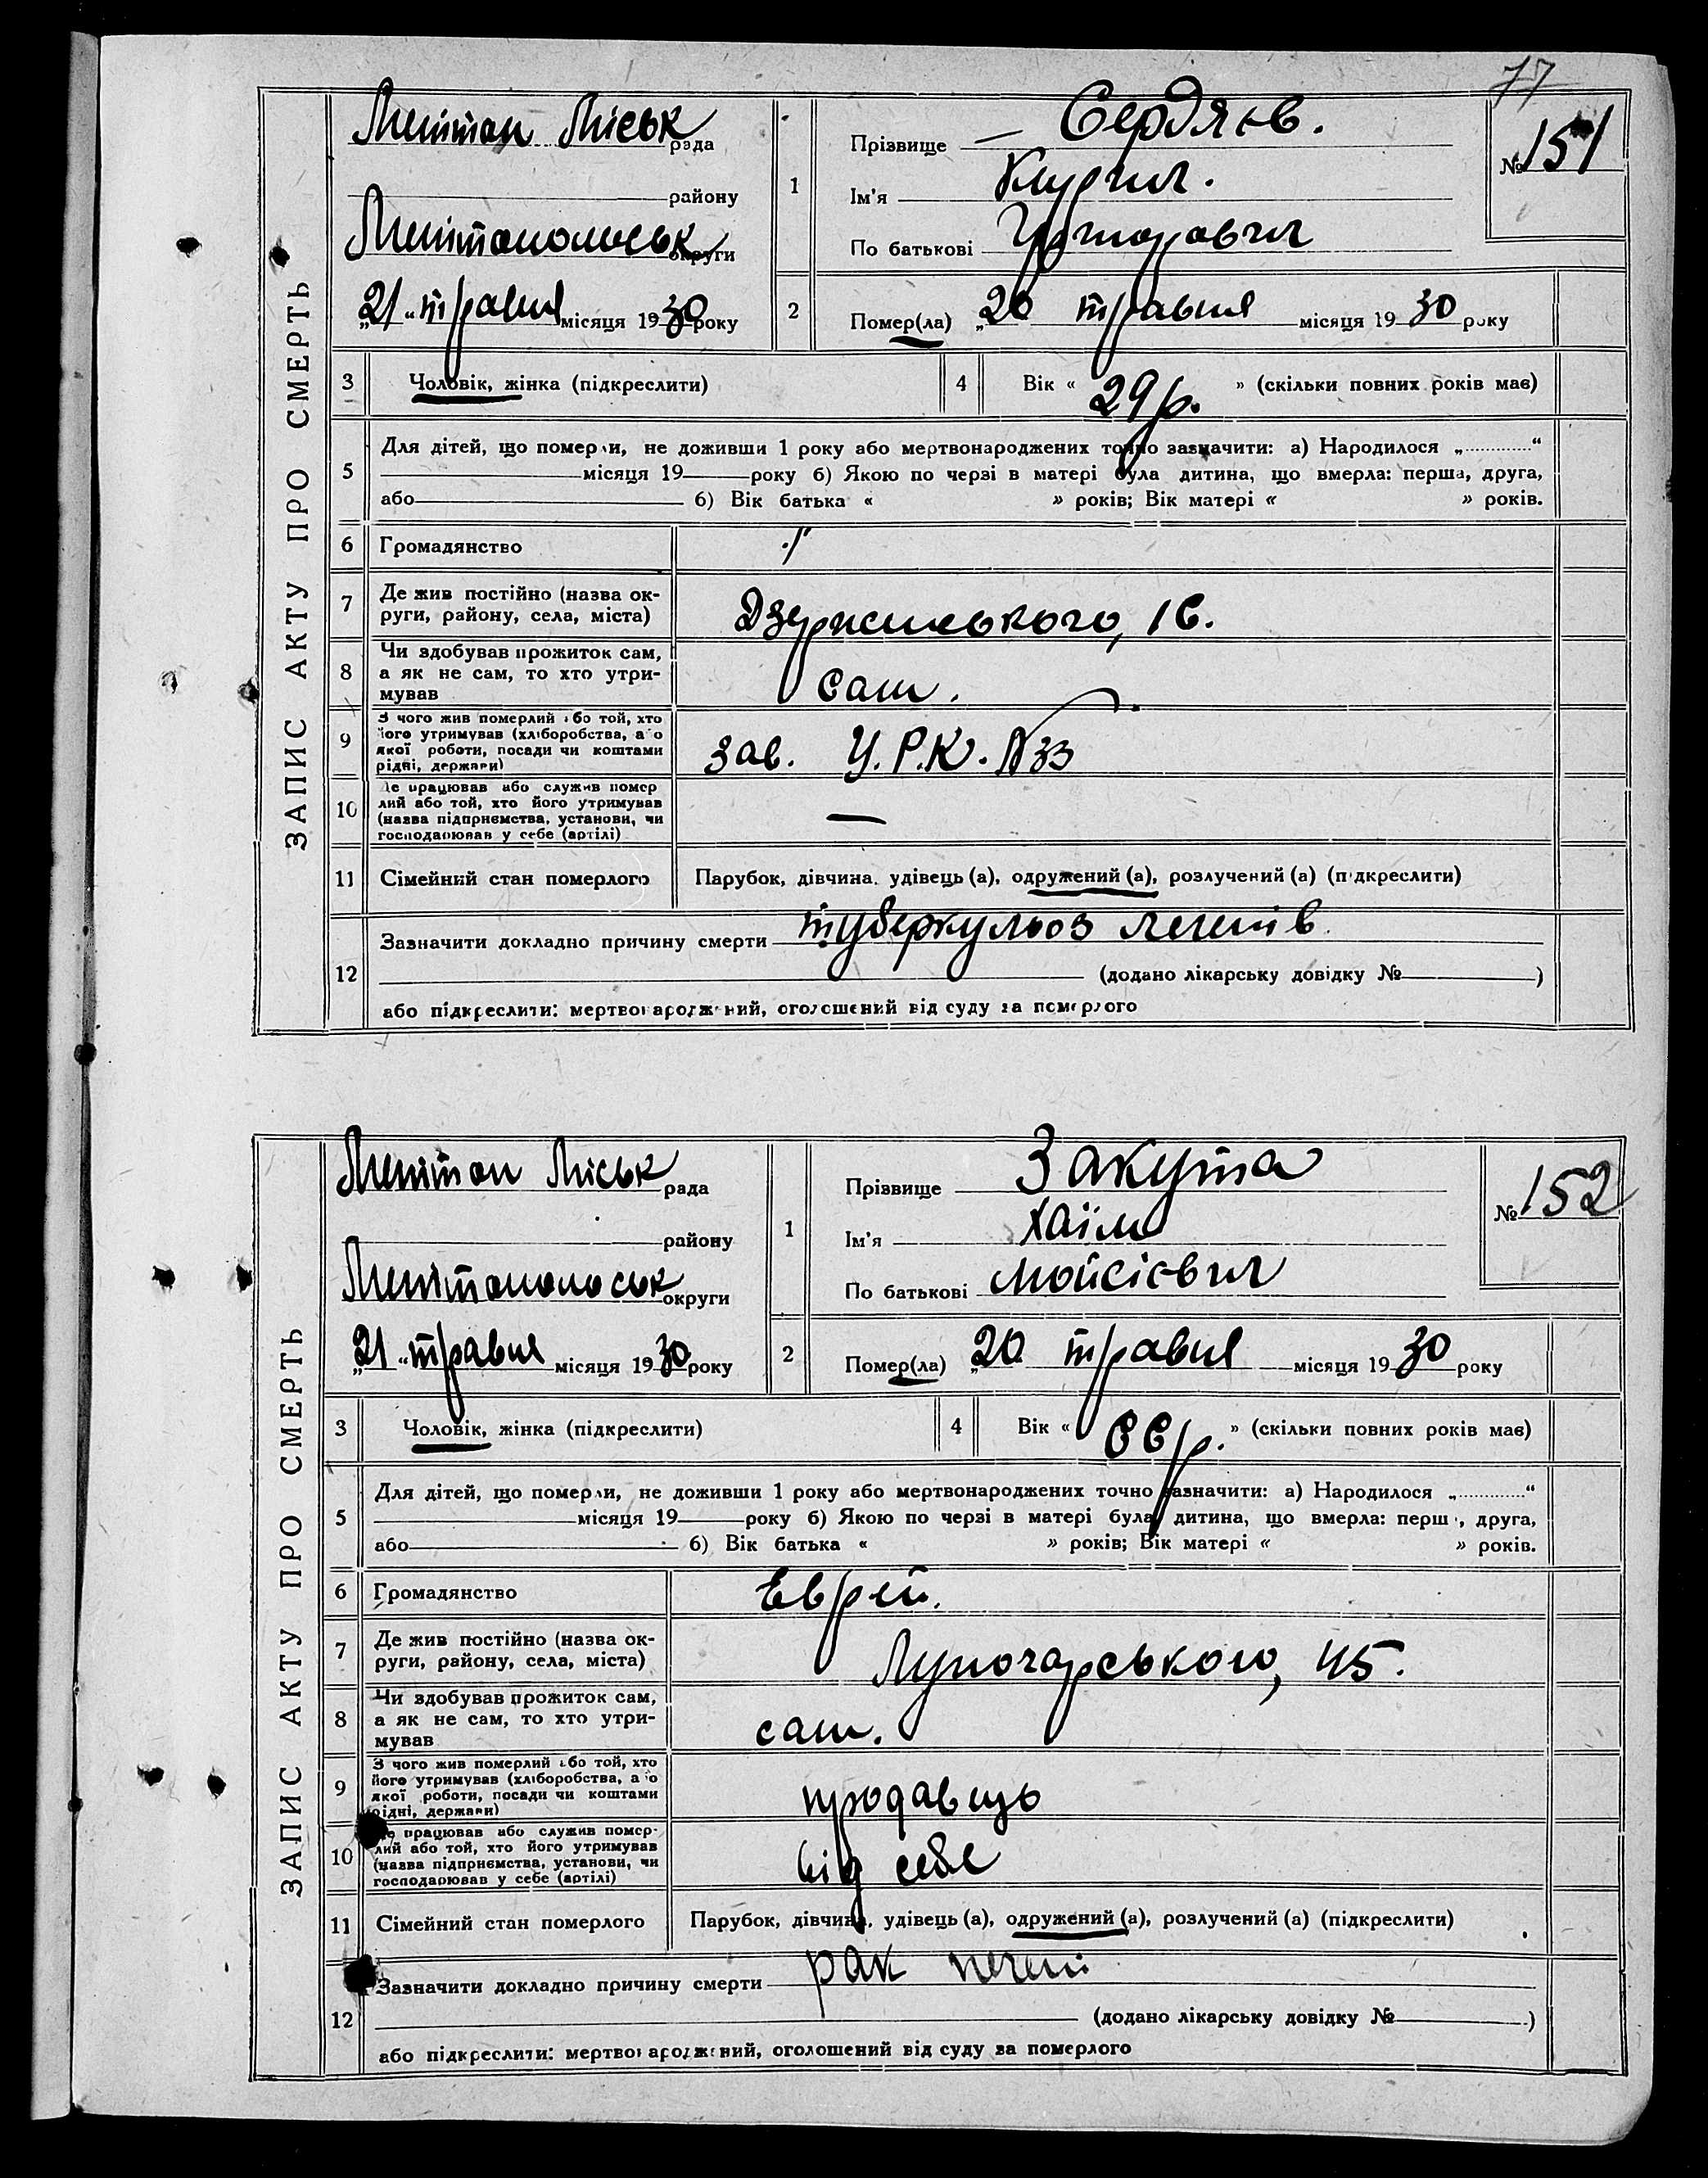 77
ЗАПИС АКТУ ПРО СМЕРТЬ
Мелітоп Міськ рада
району
Мелітопольськ округи
„21“ травня місяця 1930 року
1
Прізвище Сердяєв.
Ім'я Кирил.
По батькові Григорович
№ 151
2
Помер(ла) „20 травня місяця 1930 року
3 Чоловік, жінка (підкреслити)
4 Вік « 29 р. » (скільки повних років має)
5
Для дітей, що померли, не доживши 1 року або мертвонароджених точно зазначити: а) Народилося „ “
місяця 19 року б) Якою по черзі в матері була дитина, що вмерла: перша, друга,
або б) Вік батька « » років; Вік матері « » років.
6 Громадянство
7
Де жив постійно (назва ок-
руги, району, села, міста)
Дзержинського, 16.
8
Чи здобував прожиток сам,
а як не сам, то хто утри-
мував
сам.
9
З чого жив померлий або той, хто
його утримував (хліборобства, або
якої роботи, посади чи коштами
рідні, держави)
зав. У.Р.К. №33
10
Де працював або служив помер
лий або той, хто його утримував
(назва підприємства, установи, чи
господарював у себе (артілі)
—
11 Сімейний стан померлого
Парубок, дівчина, удівець (а), одружений (а), розлучений (а) (підкреслити)
12
Зазначити докладно причину смерти туберкульоз легенів.
(додано лікарську довідку № )
або підкреслити: мертвонароджений, оголошений від суду за померлого
ЗАПИС АКТУ ПРО СМЕРТЬ
Меліто п Міськ рада
району
Мелітопольськ округи
„21“ травня місяця 1930 року
1
Прізвище Закута
Ім'я Хаїм
По батькові Мойсієвич
№ 152
2
Помер(ла) „20 травня місяця 1930 року
3 Чоловік, жінка (підкреслити)
4 Вік « 66 р. » (скільки повних років має)
5
Для дітей, що померли, не доживши 1 року або мертвонароджених точно зазначити: а) Народилося „ “
місяця 19 року б) Якою по черзі в матері була дитина, що вмерла: перша, друга,
або б) Вік батька « » років; Вік матері « » років.
6 Громадянство
Еврей.
7
Де жив постійно (назва ок-
руги, району, села, міста)
Луночарського, 45.
8
Чи здобував прожиток сам,
а як не сам, то хто утри-
мував
сам.
9
З чого жив померлий або той, хто
його утримував (хліборобства, або
якої роботи, посади чи коштами
рідні, держави)
продавець
10
Де працював або служив помер-
лий або той, хто його утримував
(назва підприємства, установи, чи
господарював у себе (артілі)
від себе
11 Сімейний стан померлого
Парубок, дівчина, удівець (а), одружений (а), розлучений (а) (підкреслити)
12
Зазначити докладно причину смерти рак печені
(додано лікарську довідку № )
або підкреслити: мертвонароджений, оголошений від суду за померлого